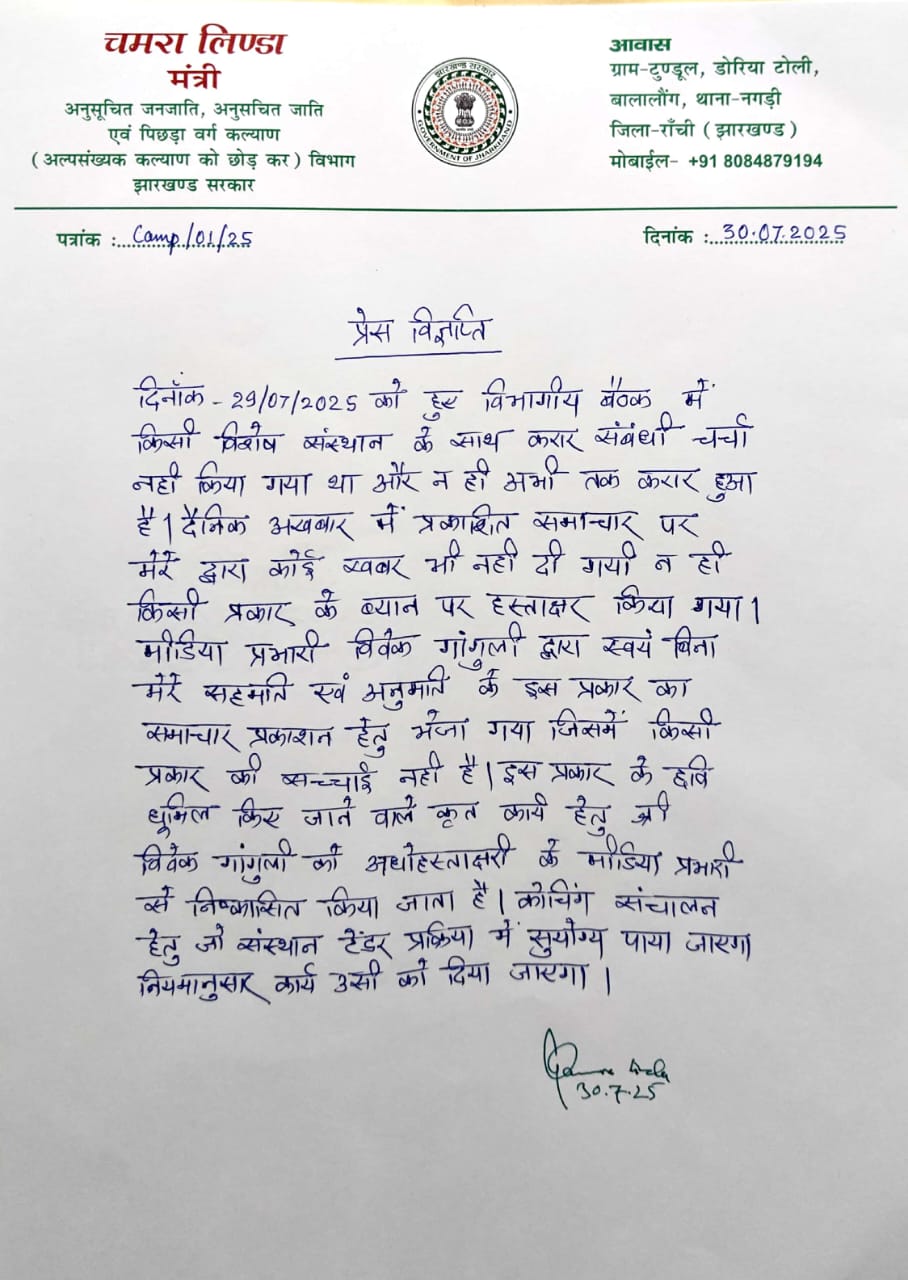 चमरा लिण्डा
मंत्री
अनुसूचित जनजाति, अनुसचित जाति
एवं पिछड़ा वर्ग कल्याण
(अल्पसंख्यक कल्याण को छोड़ कर) विभाग
झारखण्ड सरकार
झारखण्ड सरकार
GOVERNMENT OF JHARKHAND
आवास
ग्राम-टुण्डूल, डोरिया टोली,
बालालौंग, थाना-नगड़ी
जिला-राँची (झारखण्ड)
मोबाईल- +91 8084879194
पत्रांक :..... Camp/01/25
दिनांक :.. 30.07.2025
प्रेस विज्ञप्ति
दिनाँक - 29/07/2025 को हुए विभागीय बैठक में
किसी विशेष संस्थान के साथ करार संबंधी चर्चा
नही किया गया था और न ही अभी तक करार हुआ
है। दैनिक अखबार में प्रकाशित समाचार पर
मेरे द्वारा कोई खबर भी नही दी गयी न ही
किसी प्रकार के ब्यान पर हस्ताक्षर किया गया।
मीडिया प्रभारी विवेक गांगुली द्वारा स्वयं बिना
मेरे सहमति एवं अनुमति के इस प्रकार का
समाचार प्रकाशन हेतु भेजा गया जिसमें किसी
प्रकार की सच्चाई नही है। इस प्रकार के छवि
धूमिल किए जाने वाले कृत कार्य हेतु श्री
विवेक गांगुली को अधोहस्ताक्षरी के मीडिया प्रभारी
से निष्कासित किया जाता है। कोचिंग संचालन
हेतु जो संस्थान टेंडर प्रक्रिया में सुयोग्य पाया जाएगा
नियमानुसार कार्य उसी को दिया जाएगा।
30.7.25